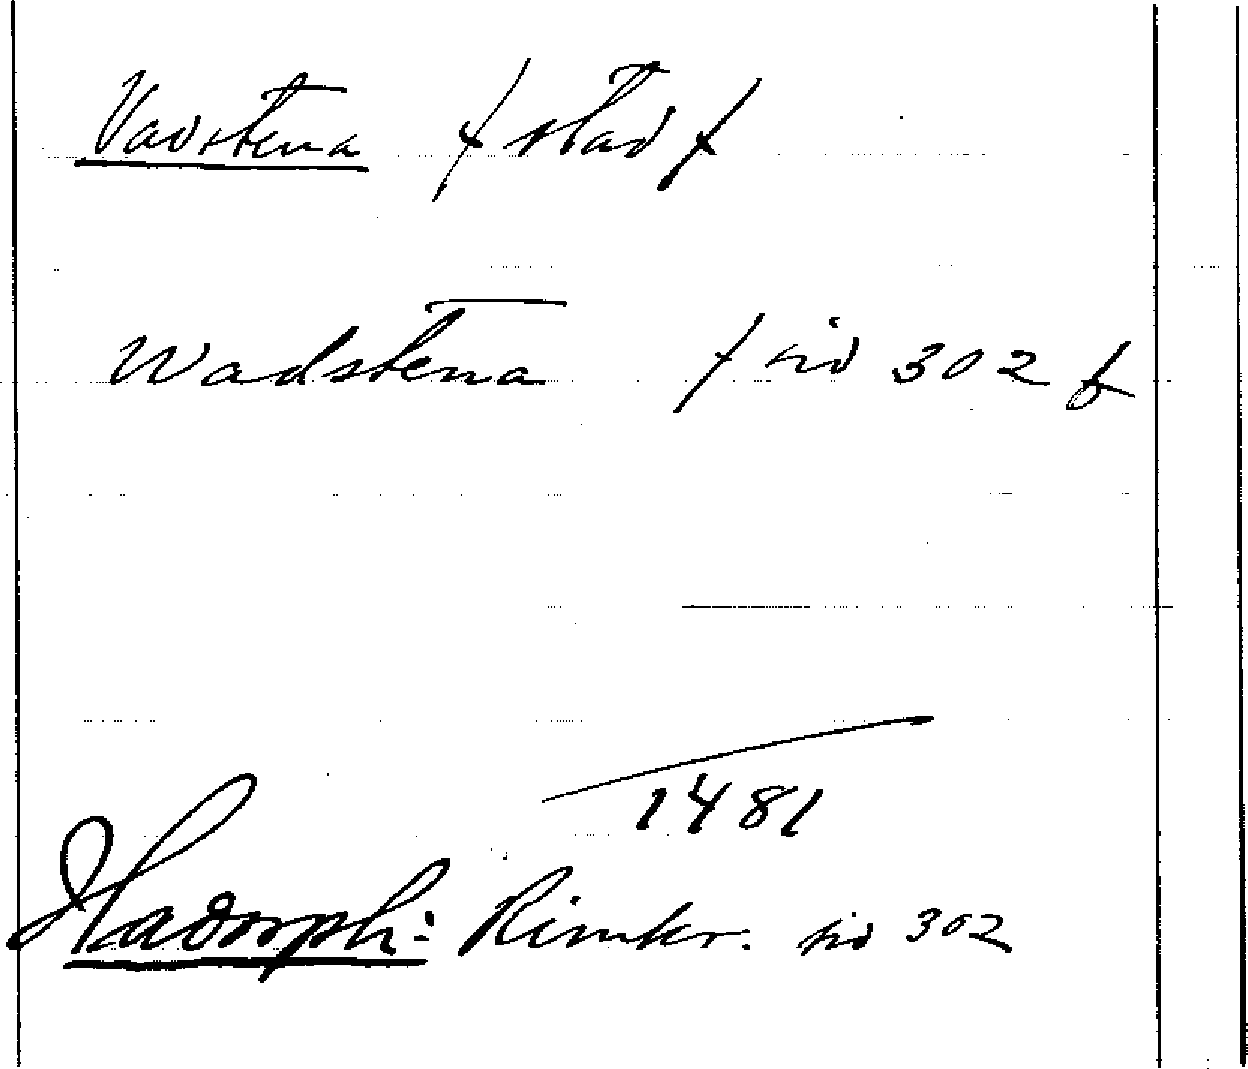 Vadstena / stad /
Wadstena / sid 302 /
1481
Hadorph: Rimkr. sid 302